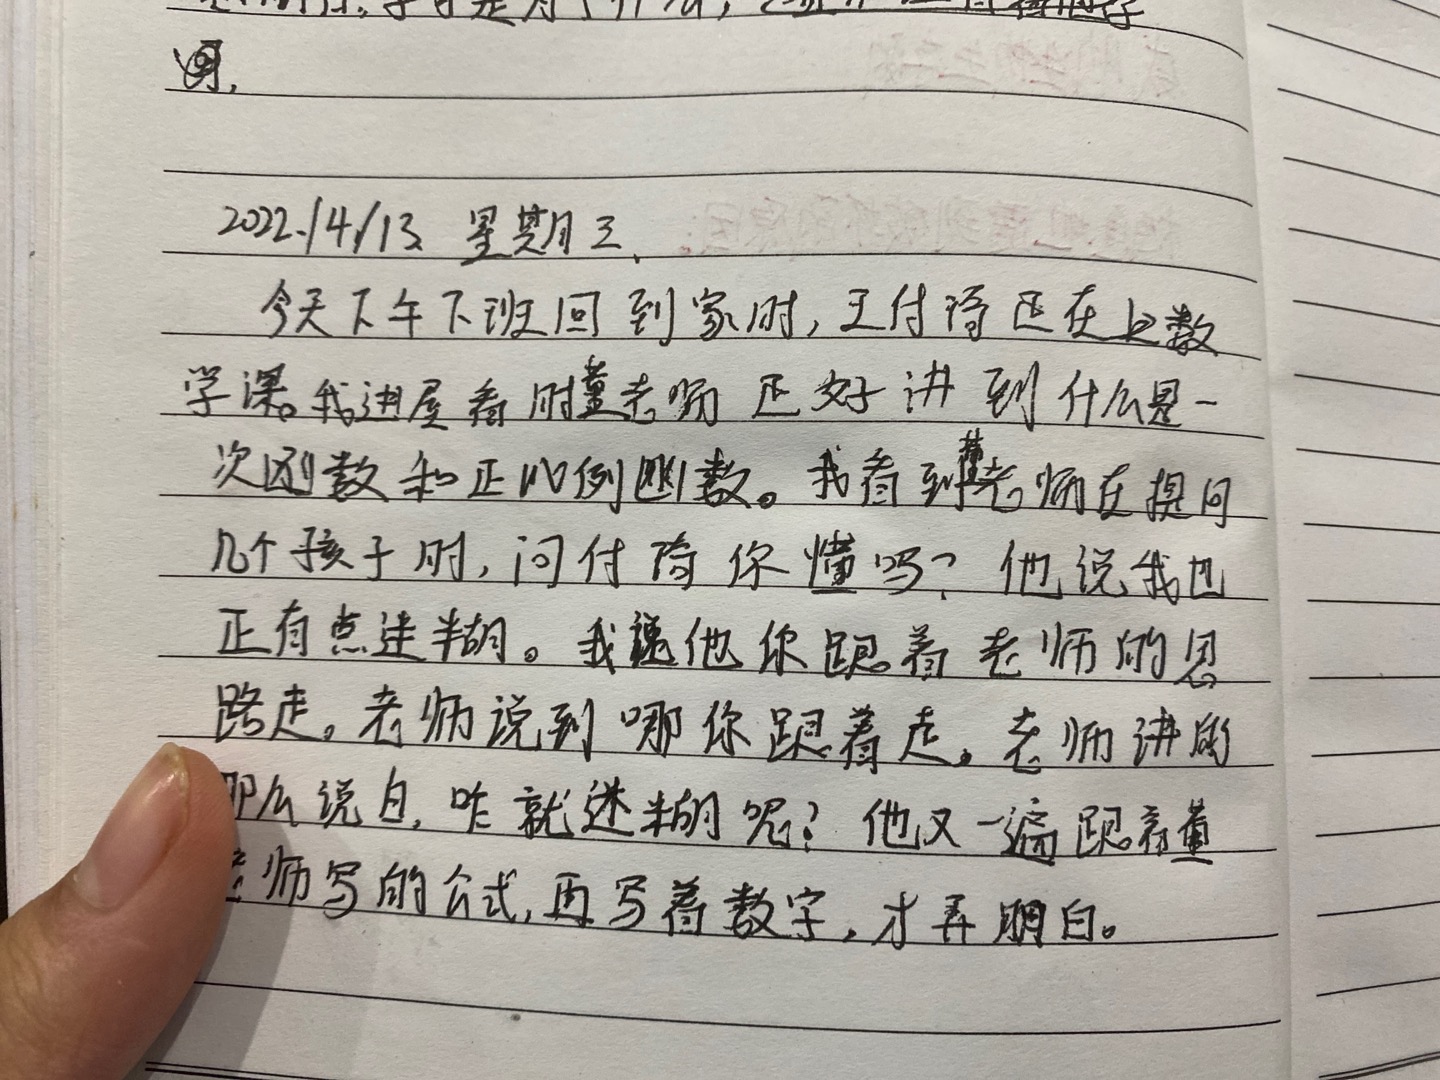 学习是为了什么，
2022.14/13 星期三、
今天下午下班回到家时，王付 正在上数
学课。我进屋看时董老师正好讲到什么是一
次函数和正比例函数。我看到董老师在提问
几个孩子时，问付 你懂吗？他说我也
正有点迷糊。我说他你跟着老师的思
路走。老师说到哪你跟着走。老师讲的
那么说白，咋就迷糊呢？他又一遍跟着董
老师写的公式，再写着数字，才弄明白。